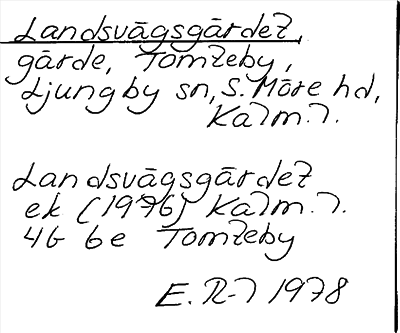 Landsvägsgärdet,
gärde, Tomteby,
Ljungby sn, S. Möre hd,
Kalm. l.
Landsvägsgärdet
ek (1976) Kalm. l.
4G 6e Tomteby
E. R-l 1978